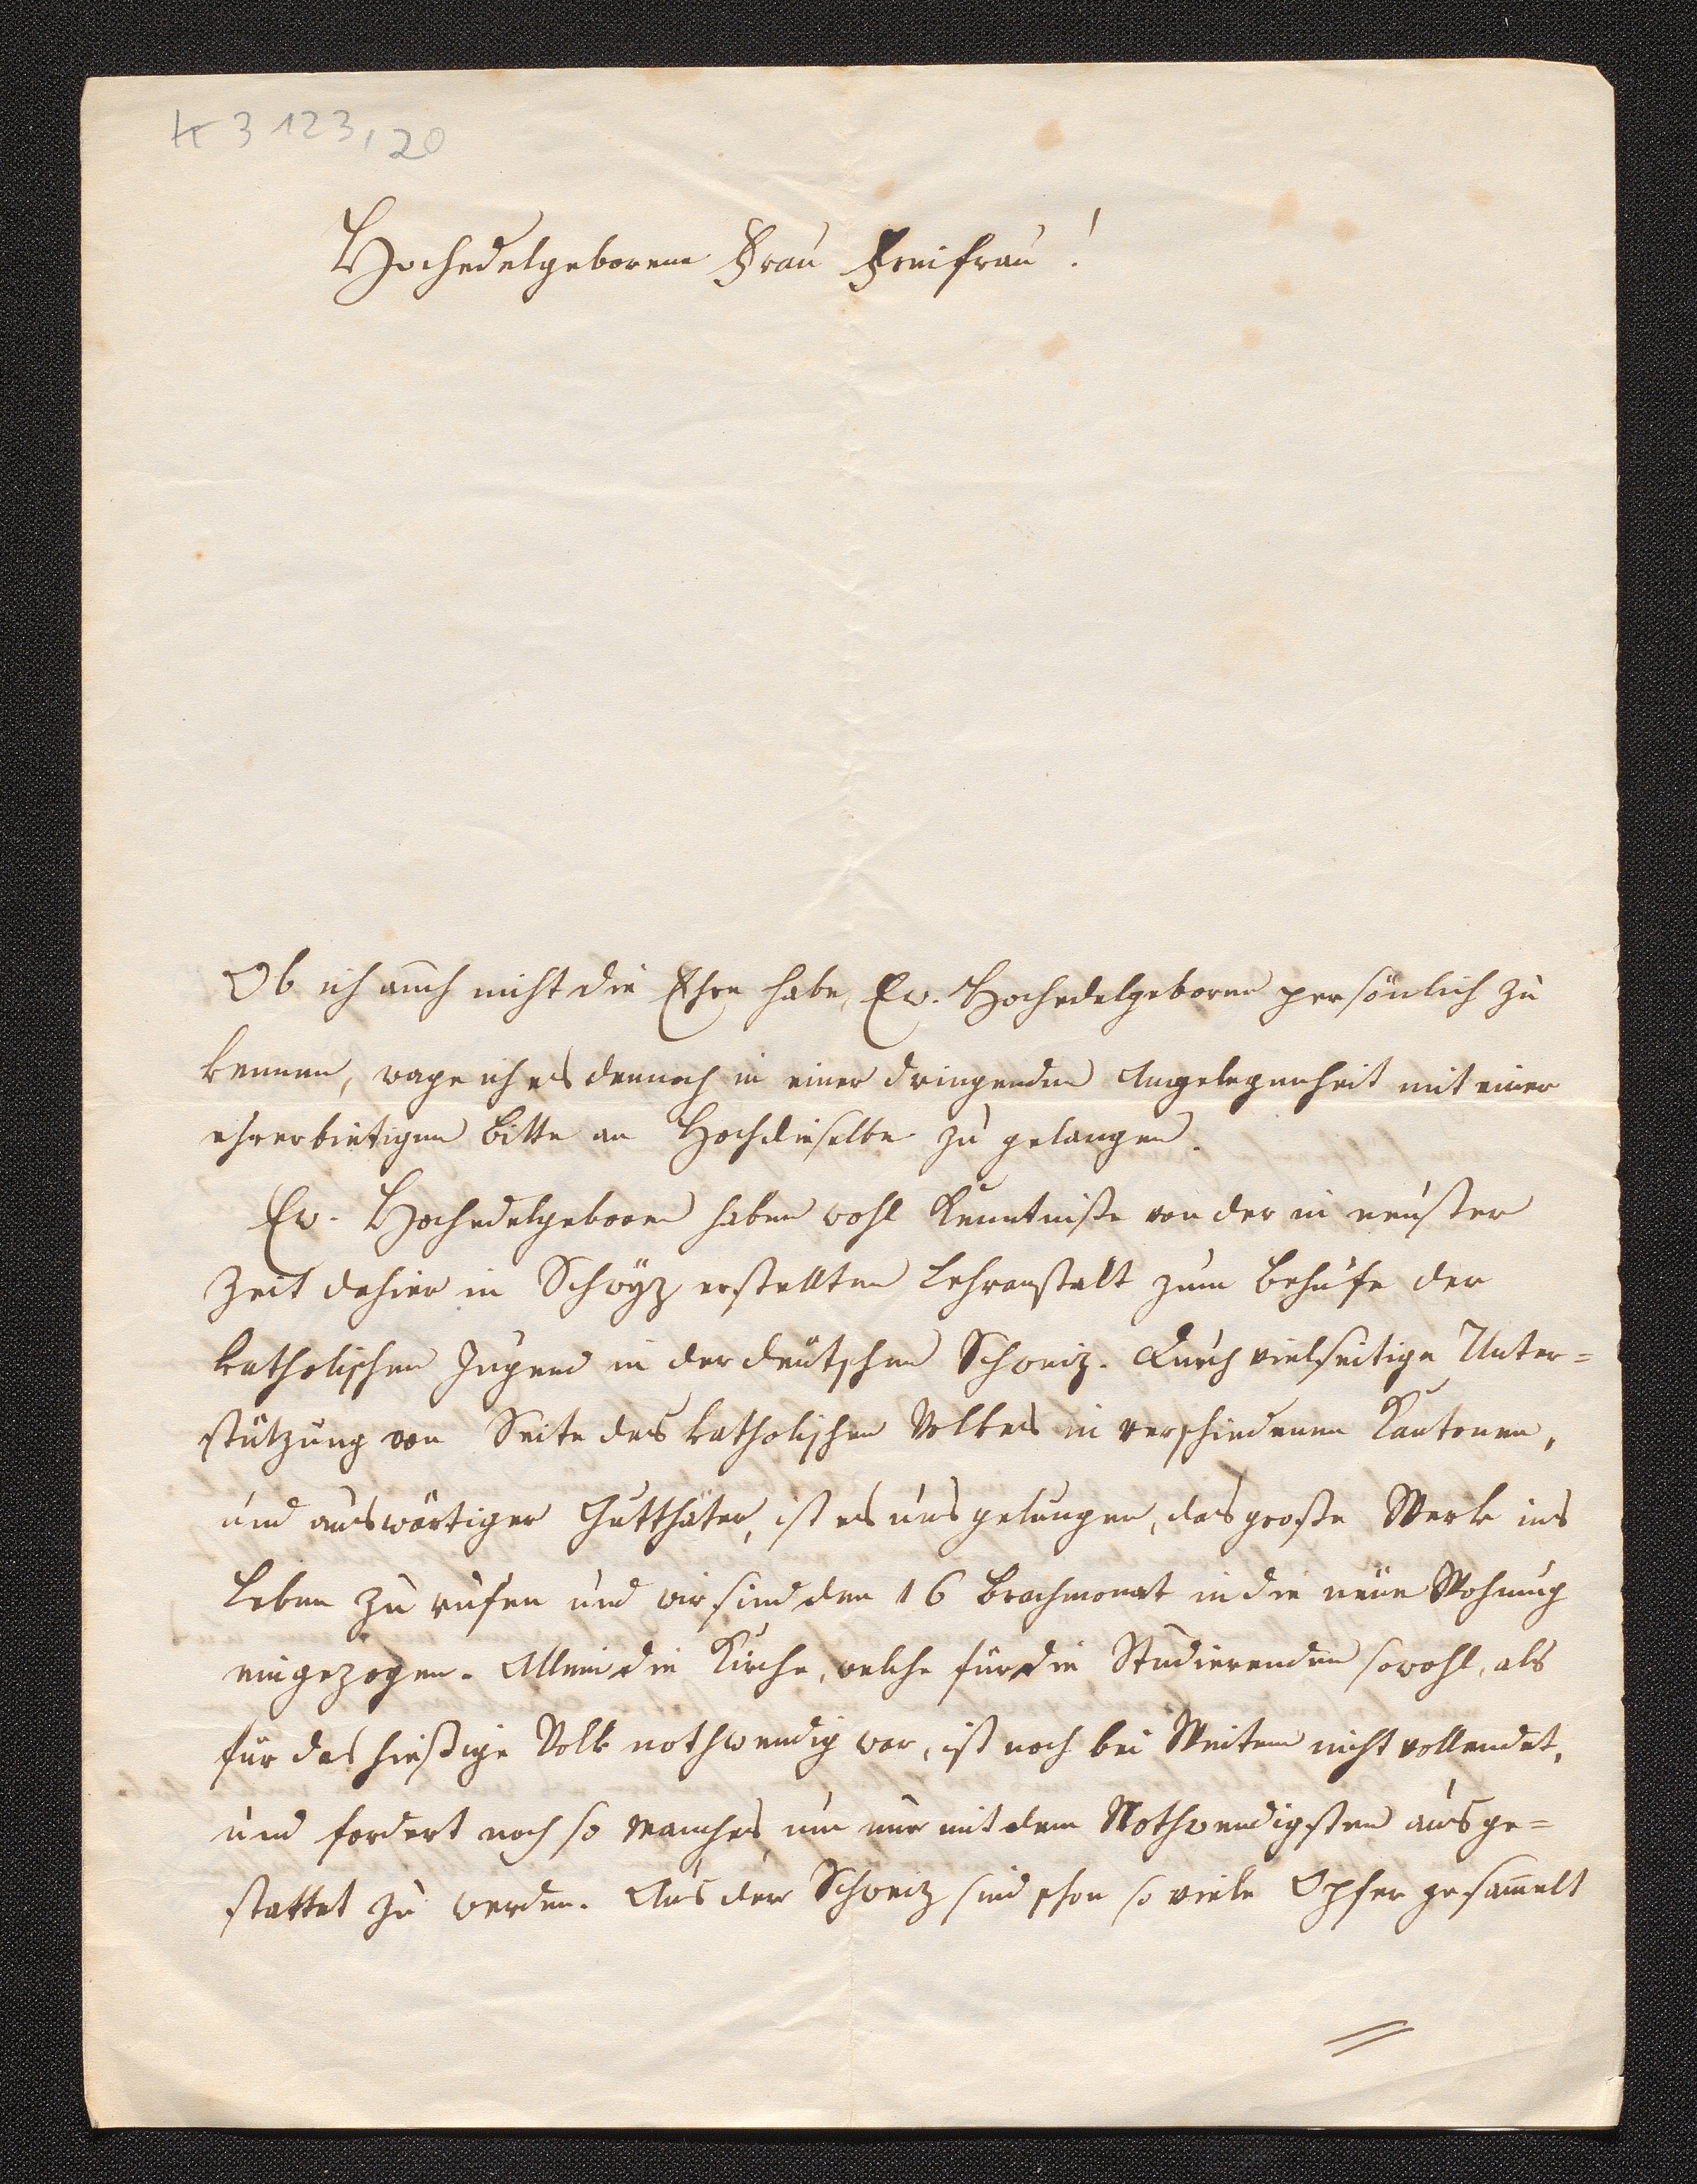 K 3 123, 20
Hochedelgeborene Frau Freifrau!
Ob ich auch nicht die Ehre habe, Ew. Hochedelgeborne persönlich zu
kennen, wage ich es dennoch in einer dringenden Angelegenheit mit einer
ehrerbietigen Bitte an Hochdieselbe zu gelangen.
Ew. Hochedelgeboren haben wohl Kenntniße von der in neuster
Zeit dahier in Schwÿz erstellten Lehranstalt zum Behufe der
katholischen Jugend in der deutschen Schweiz. Durch vielseitige Unter=
stützung von Seite des katholischen Volkes in verschiedenen Kantonen,
und auswärtiger Gutthäter, ist es uns gelungen, das große Werk ins
Leben zu rufen und wir sind den 16 Brachmonat in die neue Wohnung
eingezogen. Allein die Kirche, welche für die Studierenden sowohl, als
für das hießige Volk nothwendig war, ist noch bei Weitem nicht vollendet,
und fordert noch so Manches, um nur mit dem Nothwendigsten ausge=
stattet zu werden. Aus der Schweiz sind schon so viele Opfer gesam̄elt